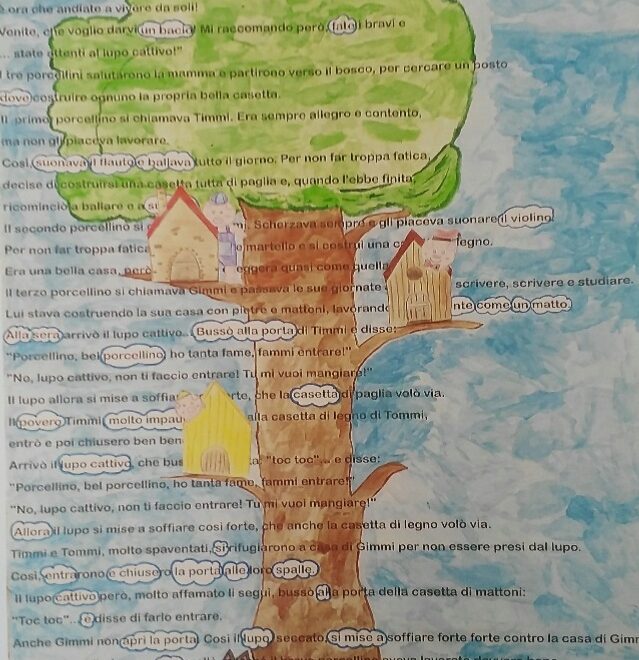 è ora che andiate a vivere da soli!
Venite, che voglio darvi un bacio! Mi raccomando però, fate i bravi e
... state attenti al lupo cattivo!"
I tre porcellini salutarono la mamma e partirono verso il bosco, per cercare un posto
dove costruire ognuno la propria bella casetta.
Il primo porcellino si chiamava Timmi. Era sempre allegro e contento,
ma non gli piaceva lavorare.
Così, suonava il flauto e ballava tutto il giorno. Per non far troppa fatica,
decise di costruirsi una casetta tutta di paglia e, quando l'ebbe finita,
ricominciò a ballare e a
Il secondo porcellino si mi. Scherzava sempre e gli piaceva suonare il violino!
Per non far troppa fatica e martello e si costruì una legno.
Era una bella casa, però eggera quasi come quella
Il terzo porcellino si chiamava Gimmi e passava le sue giornate scrivere, scrivere e studiare.
Lui stava costruendo la sua casa con pietre e mattoni, lavorando nte come un matto.
Alla sera arrivò il lupo cattivo... Bussò alla porta di Timmi e disse:
"Porcellino, bel porcellino, ho tanta fame, fammi entrare!"
"No, lupo cattivo, non ti faccio entrare! Tu mi vuoi mangiare!"
Il lupo allora si mise a soffia rte, che la casetta di paglia volò via.
Il povero Timmi, molto impau alla casetta di legno di Tommi,
entrò e poi chiusero ben ben
Arrivò il lupo cattivo, che bus ta: "toc toc"... e disse:
"Porcellino, bel porcellino, ho tanta fame, fammi entrare!"
"No, lupo cattivo, non ti faccio entrare! Tu mi vuoi mangiare!"
Allora il lupo si mise a soffiare così forte, che anche la casetta di legno volò via.
Timmi e Tommi, molto spaventati, si rifugiarono a casa di Gimmi per non essere presi dal lupo.
Così, entrarono e chiusero la porta alle loro spalle.
Il lupo cattivo però, molto affamato li seguì, bussò alla porta della casetta di mattoni:
"Toc toc"... e disse di farlo entrare.
Anche Gimmi non aprì la porta. Così il lupo, seccato, si mise a soffiare forte forte contro la casa di Gimm